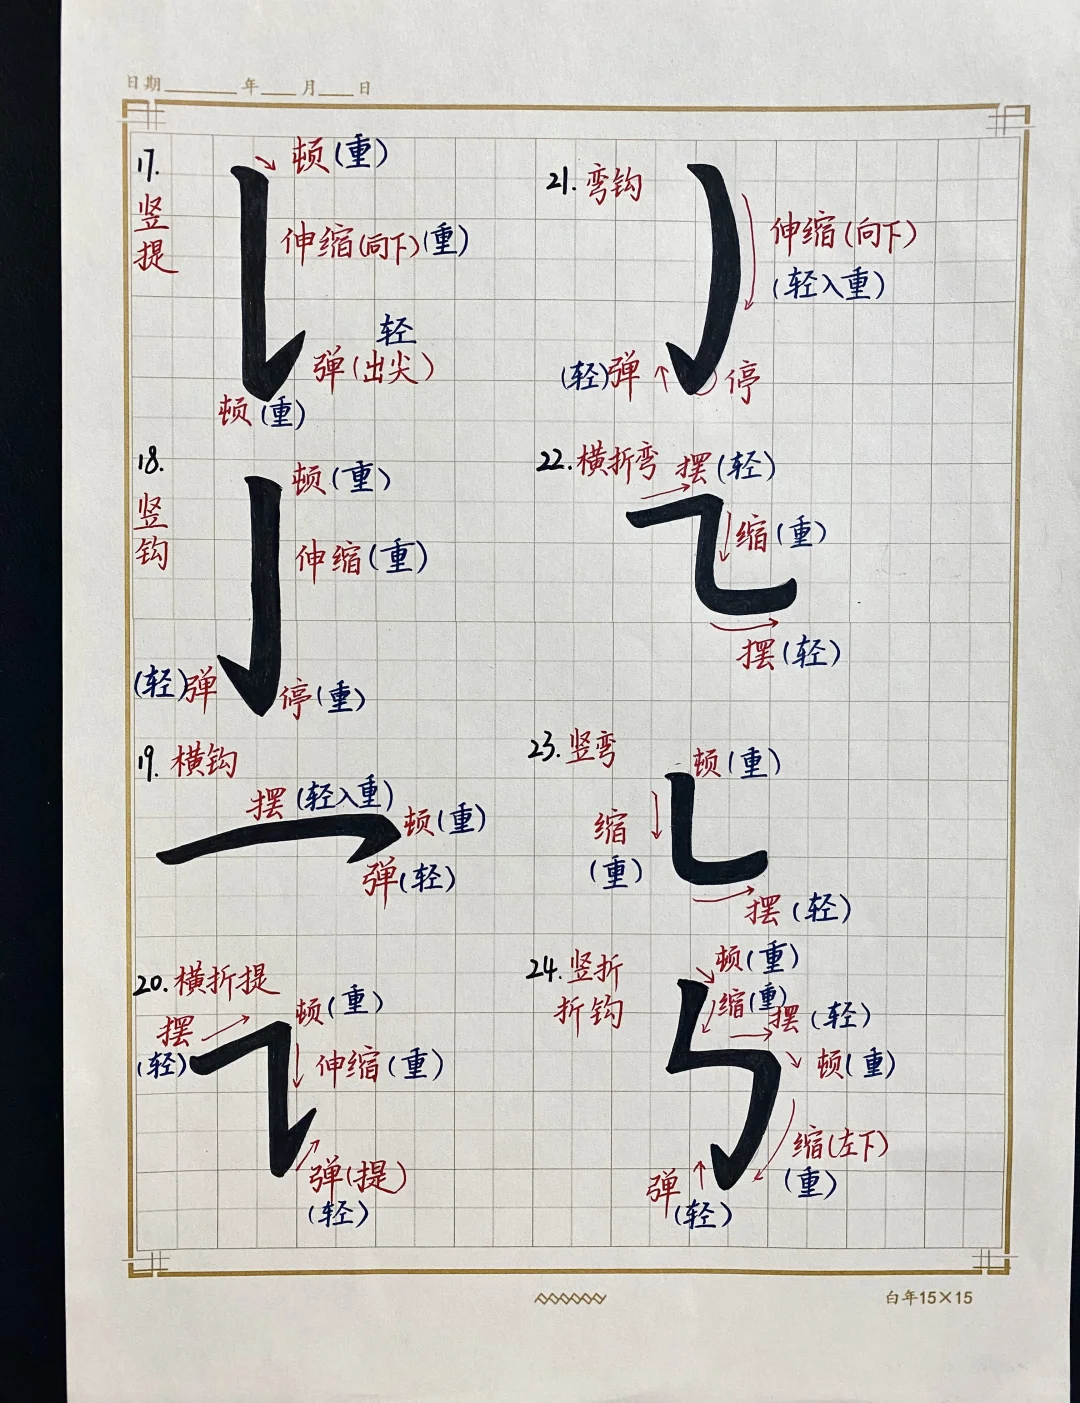 日期____年__月__日
17.
竖
提
顿(重)
伸缩(向下)(重)
轻
弹(出尖)
顿(重)
18.
竖
钩
顿(重)
伸缩(重)
(轻)弹
停(重)
19. 横钩
摆(轻入重)
顿(重)
弹(轻)
20. 横折提
摆
(轻)
顿(重)
伸缩(重)
弹(提)
(轻)
21. 弯钩
伸缩(向下)
(轻入重)
(轻)弹
停
22. 横折弯
摆(轻)
缩(重)
摆(轻)
23. 竖弯
顿(重)
缩
(重)
摆(轻)
24. 竖折
折钩
顿(重)
缩(重)
摆(轻)
顿(重)
缩(左下)
(重)
弹
(轻)
白年15×15